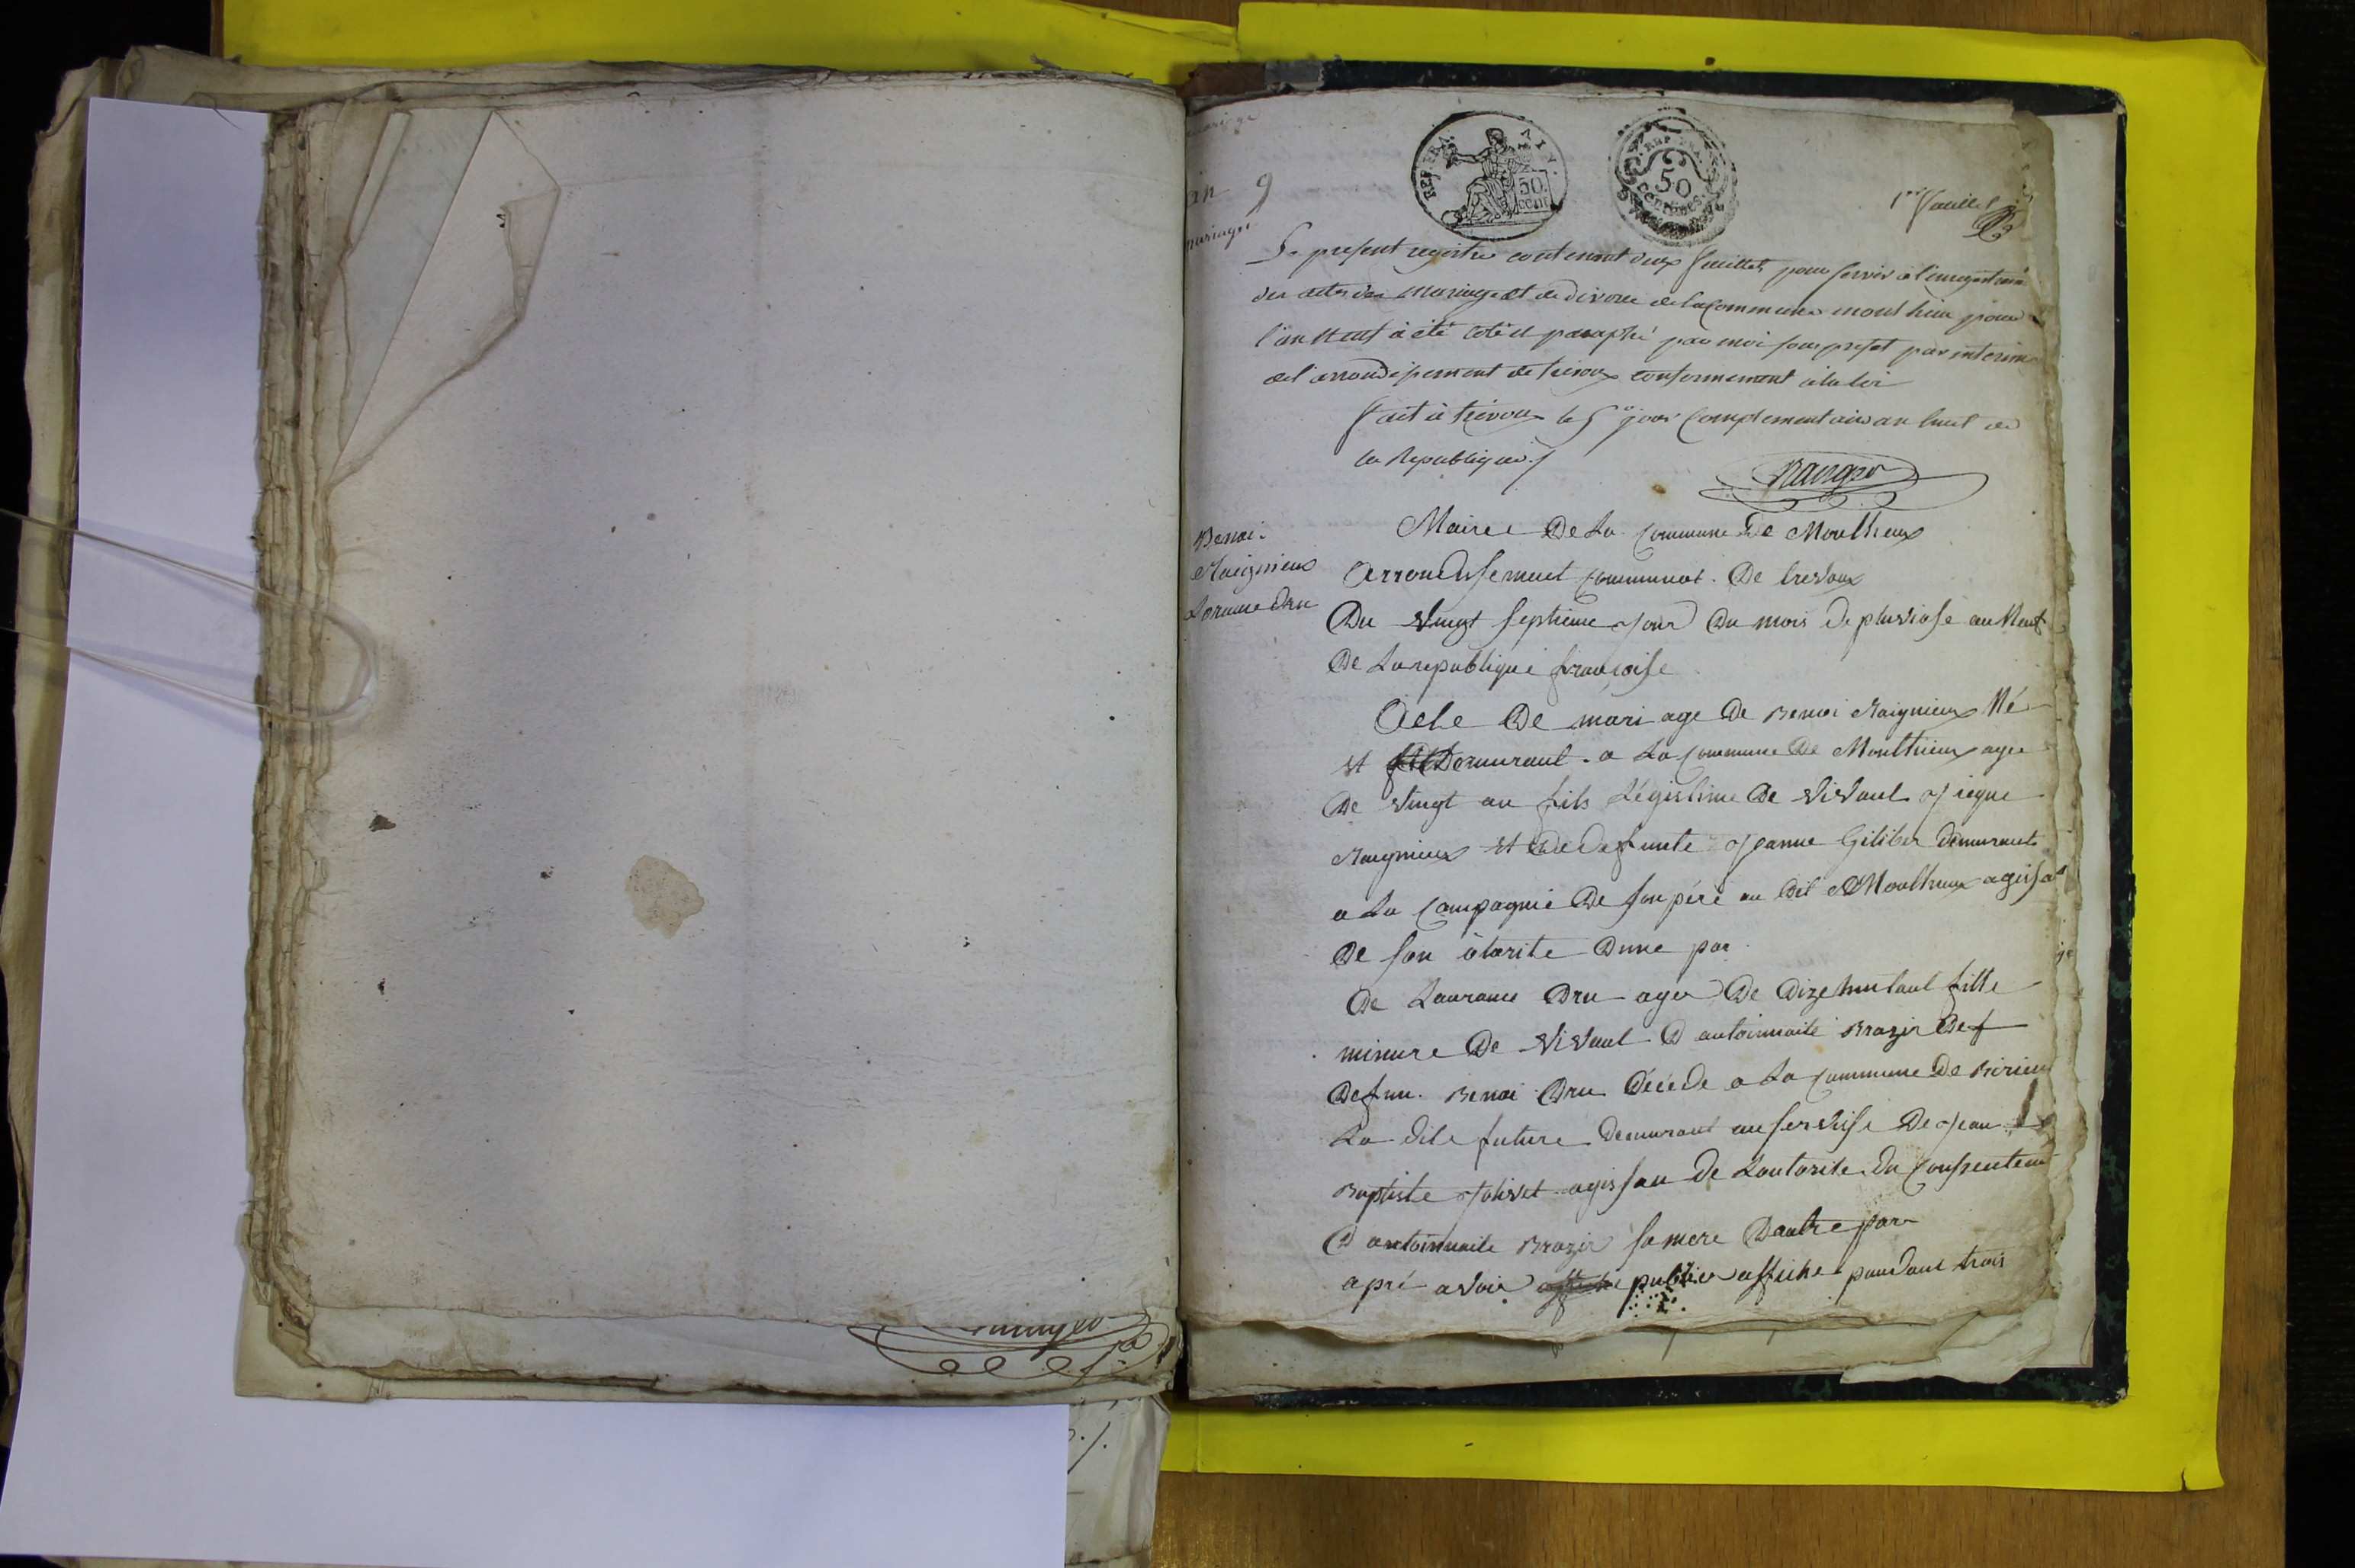 mariage
an 9
mariages
REP. FRA.
50. cent
REP. FRA.
50
centimes
1er feuillet
Le present registre contenant deux feuillets pour servir a l'enregistremt
des actes de mariage et de divorce de la commune montheu pour
l'an neuf à été coté et paraphé par moi sous prefet par interim
del'arrondissement de trevoux conformement a la loi
fait à trevoux le 5e jour complementaire an huit de
la Republique ./.
Benoi
Raignieux
Lorance Dru
Mairee De La commune De Monthieux
Arrondissement communal. De trevoux
Du vingt septieme jour Du mois De pluviose an Neuf
De La republique francoise
Acte De mari age De Benoi Raignieux Né
et Demeurant. a La commune De Monthieux agee
De vingt an fils Légistime De vivant
Raignieux et De Defunte Jeanne Giliber Demurant
a La Compagnie De son péré au Dit Monthieux agissat
De son otorite Dune par
De Laurance Dru agee De Dizehuitant fille
minure De vivant D antoinnaite Brazir De f
Defun. Benoi Dru Décéde a La commune De Birieux
La dite future Demurant au servise De Jean
Baptiste Jolivet agissan De Lautorite Du consenteme
D antoinnaite Brazir sa mere Dautre par
apré avoir publier affiche pandant trois